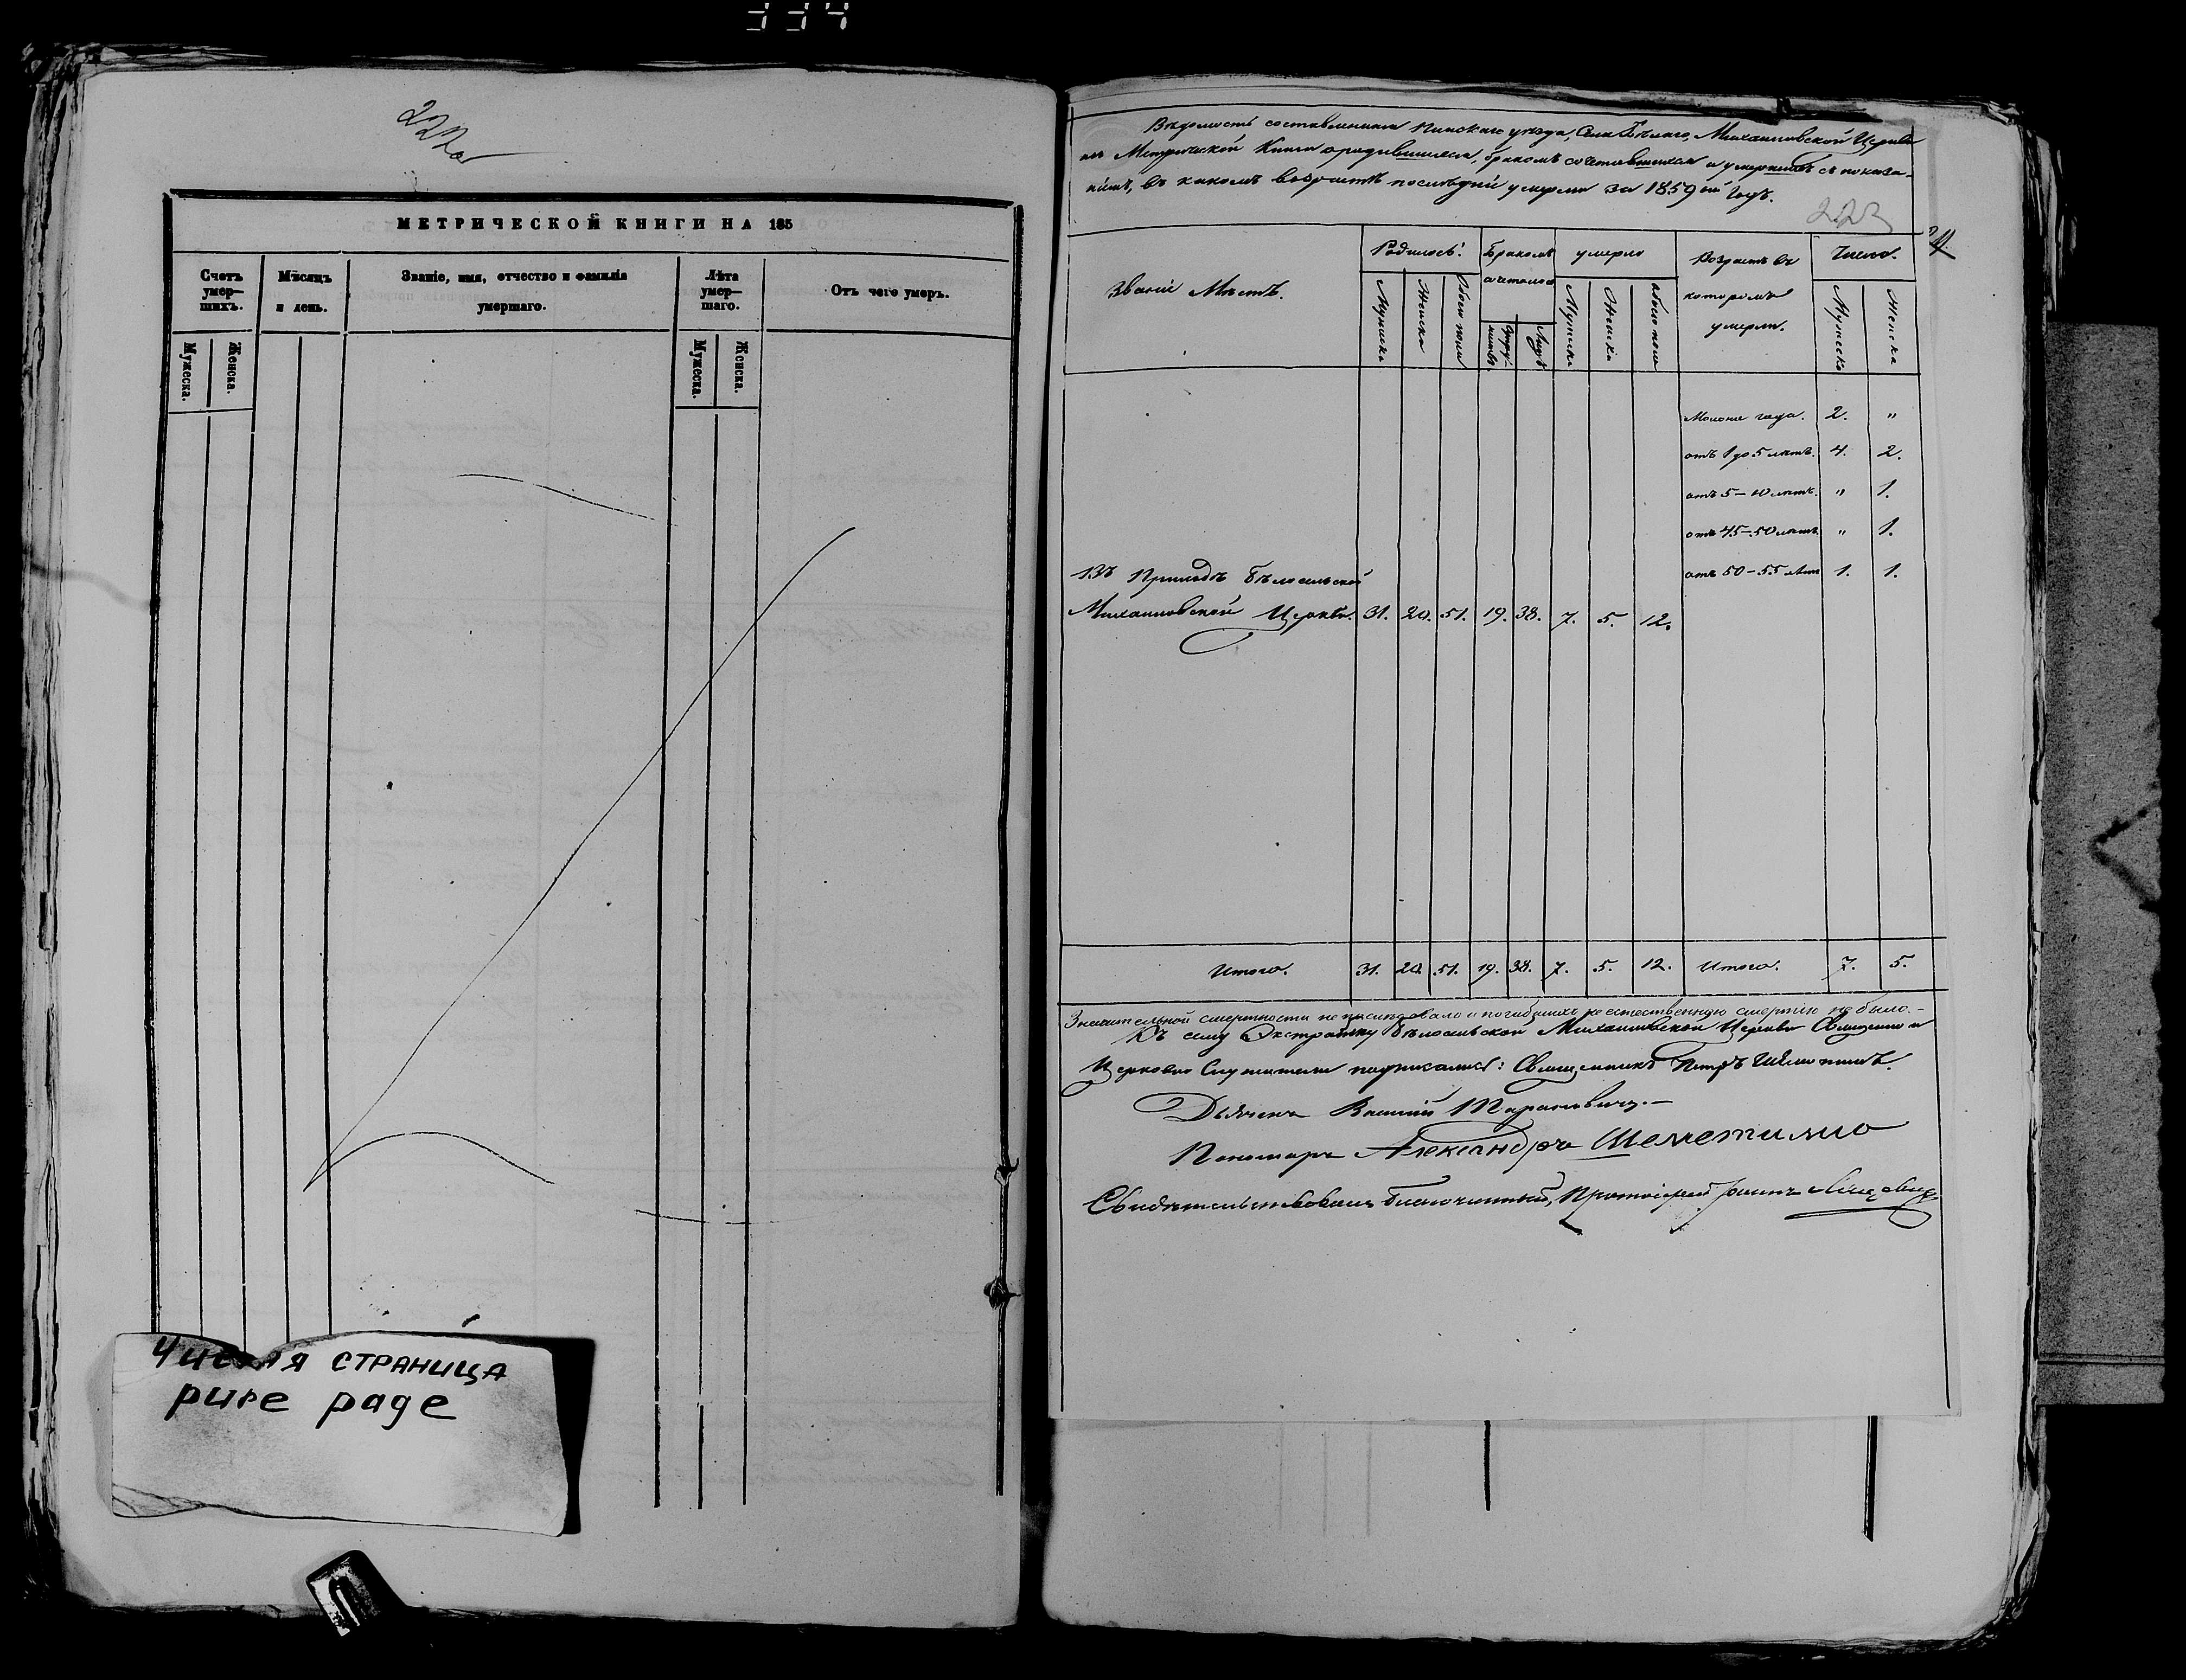 334
222об
МЕТРИЧЕСКОЙ КНИГИ НА 185
Счетъ умер— шихъ.
Мѣсяцъ и день.
Званіе, имя, отчество и фамилія умершаго.
Лѣта умер— шаго.
Отъ чего умеръ.
Мужеска.
Женска.
Мужеска.
Женска.
Чистая страница
pure page
Вѣдомость составленная Пинскаго уѣзда, Села Бѣлаго, Михаиловской Церкви
изъ Метрической Книги о родившихся, бракомъ сочетавшихся и умершихъ съ показа-
ніемъ, въ какомъ возрастѣ послѣдніи умерли за 1859ый Годъ.
223
Званіе Мѣстъ.
Родилось:
Бракомъ сочеталось
умерло
Возрастъ въ которомъ умерли.
Число.
Мужеска
Женска
Обоего пола
Супру-жествъ
Лицъ
Мужеска
Женска
обоего пола
Мужеска
Женска
Моложе года. 2. "
отъ 1 до 5 лѣтъ. 4. 2.
отъ 5—10 лѣтъ. " 1.
отъ 45—50 лѣтъ " 1.
отъ 50—55 лѣтъ 1. 1.
Въ Приходѣ Бѣлосельской
Михаиловской Церкви. 31. 20. 51. 19. 38. 7. 5. 12.
Итого. 31. 20. 51. 19. 38. 7. 5. 12. Итого. 7. 5.
Значительной смертности не послѣдовало и погибшихъ неестественную смертію не было.—
Къ сему Экстракту Бѣлосельской Михаиловской Церкви Священно и
Церковно Служители подписались: Священникъ Петръ
Дьячекъ Василій Тарасевичъ.—
Пономаръ Александръ Шеметилло
Свидѣтельствовалъ Благочинный, Протоіерей Іоаннъ